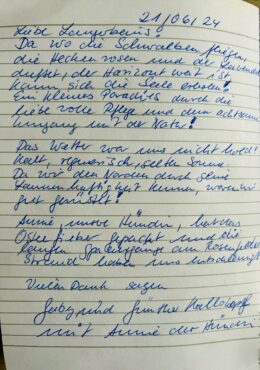 21/06/24
Liebe Langerbeins!
Da wo die Schwalben fliegen,
die Heckenrosen und der Lavendel
duftet, der Horizont weit ist
kann sich die Seele erholen!
Ein kleines Paradies durch die
liebevolle Pflege und den achtsamen
Umgang mit der Natur!
Das Wetter war uns nicht hold!
Kalt, regnerisch, selten Sonne.
Da wir den Norden durch seine
Launenhaftigkeit kennen, waren wir
gut gerüstet!
Annie, unsre Hündin, hat das
Ostseefieber gepackt und die
langen Spaziergänge am Rosenfelder
Strand haben uns entschädigt
Vielen Dank sagen
Gaby und Günther
mit Annie der Hündin